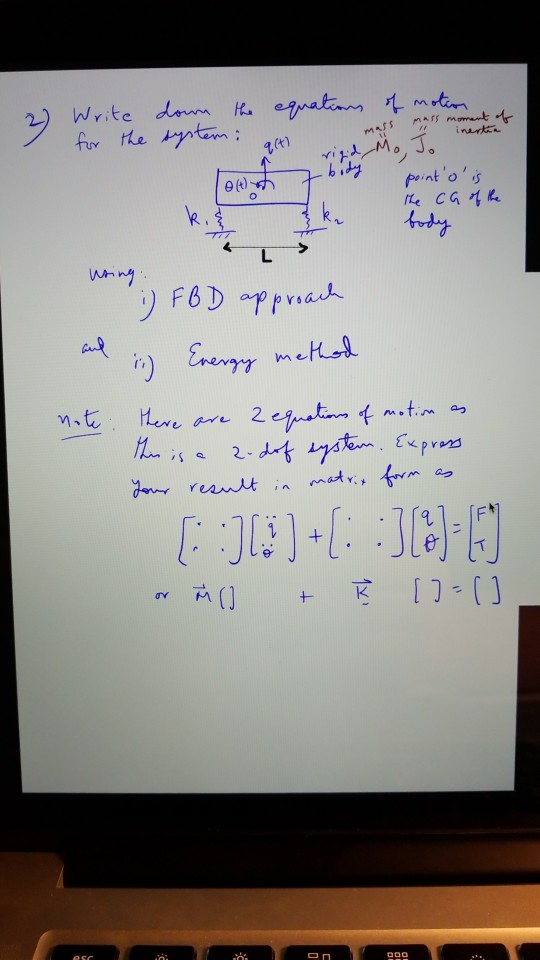 2) Write down the equations of motion
for the system:
mass
mass moment of
inertia
M₀, J₀
q(t)
rigid
body
θ(t)
o
k₁
k₂
L
point 'o' is
the CG of the
body
using:
i) FBD approach
and
ii) Energy method
note: there are 2 equations of motion as
this is a 2-dof system. Express
your result in matrix form as
[: :][q̈ θ̈] + [: :][q θ] = [F T]
or M⃗ [] + K⃗ [] = []
esc